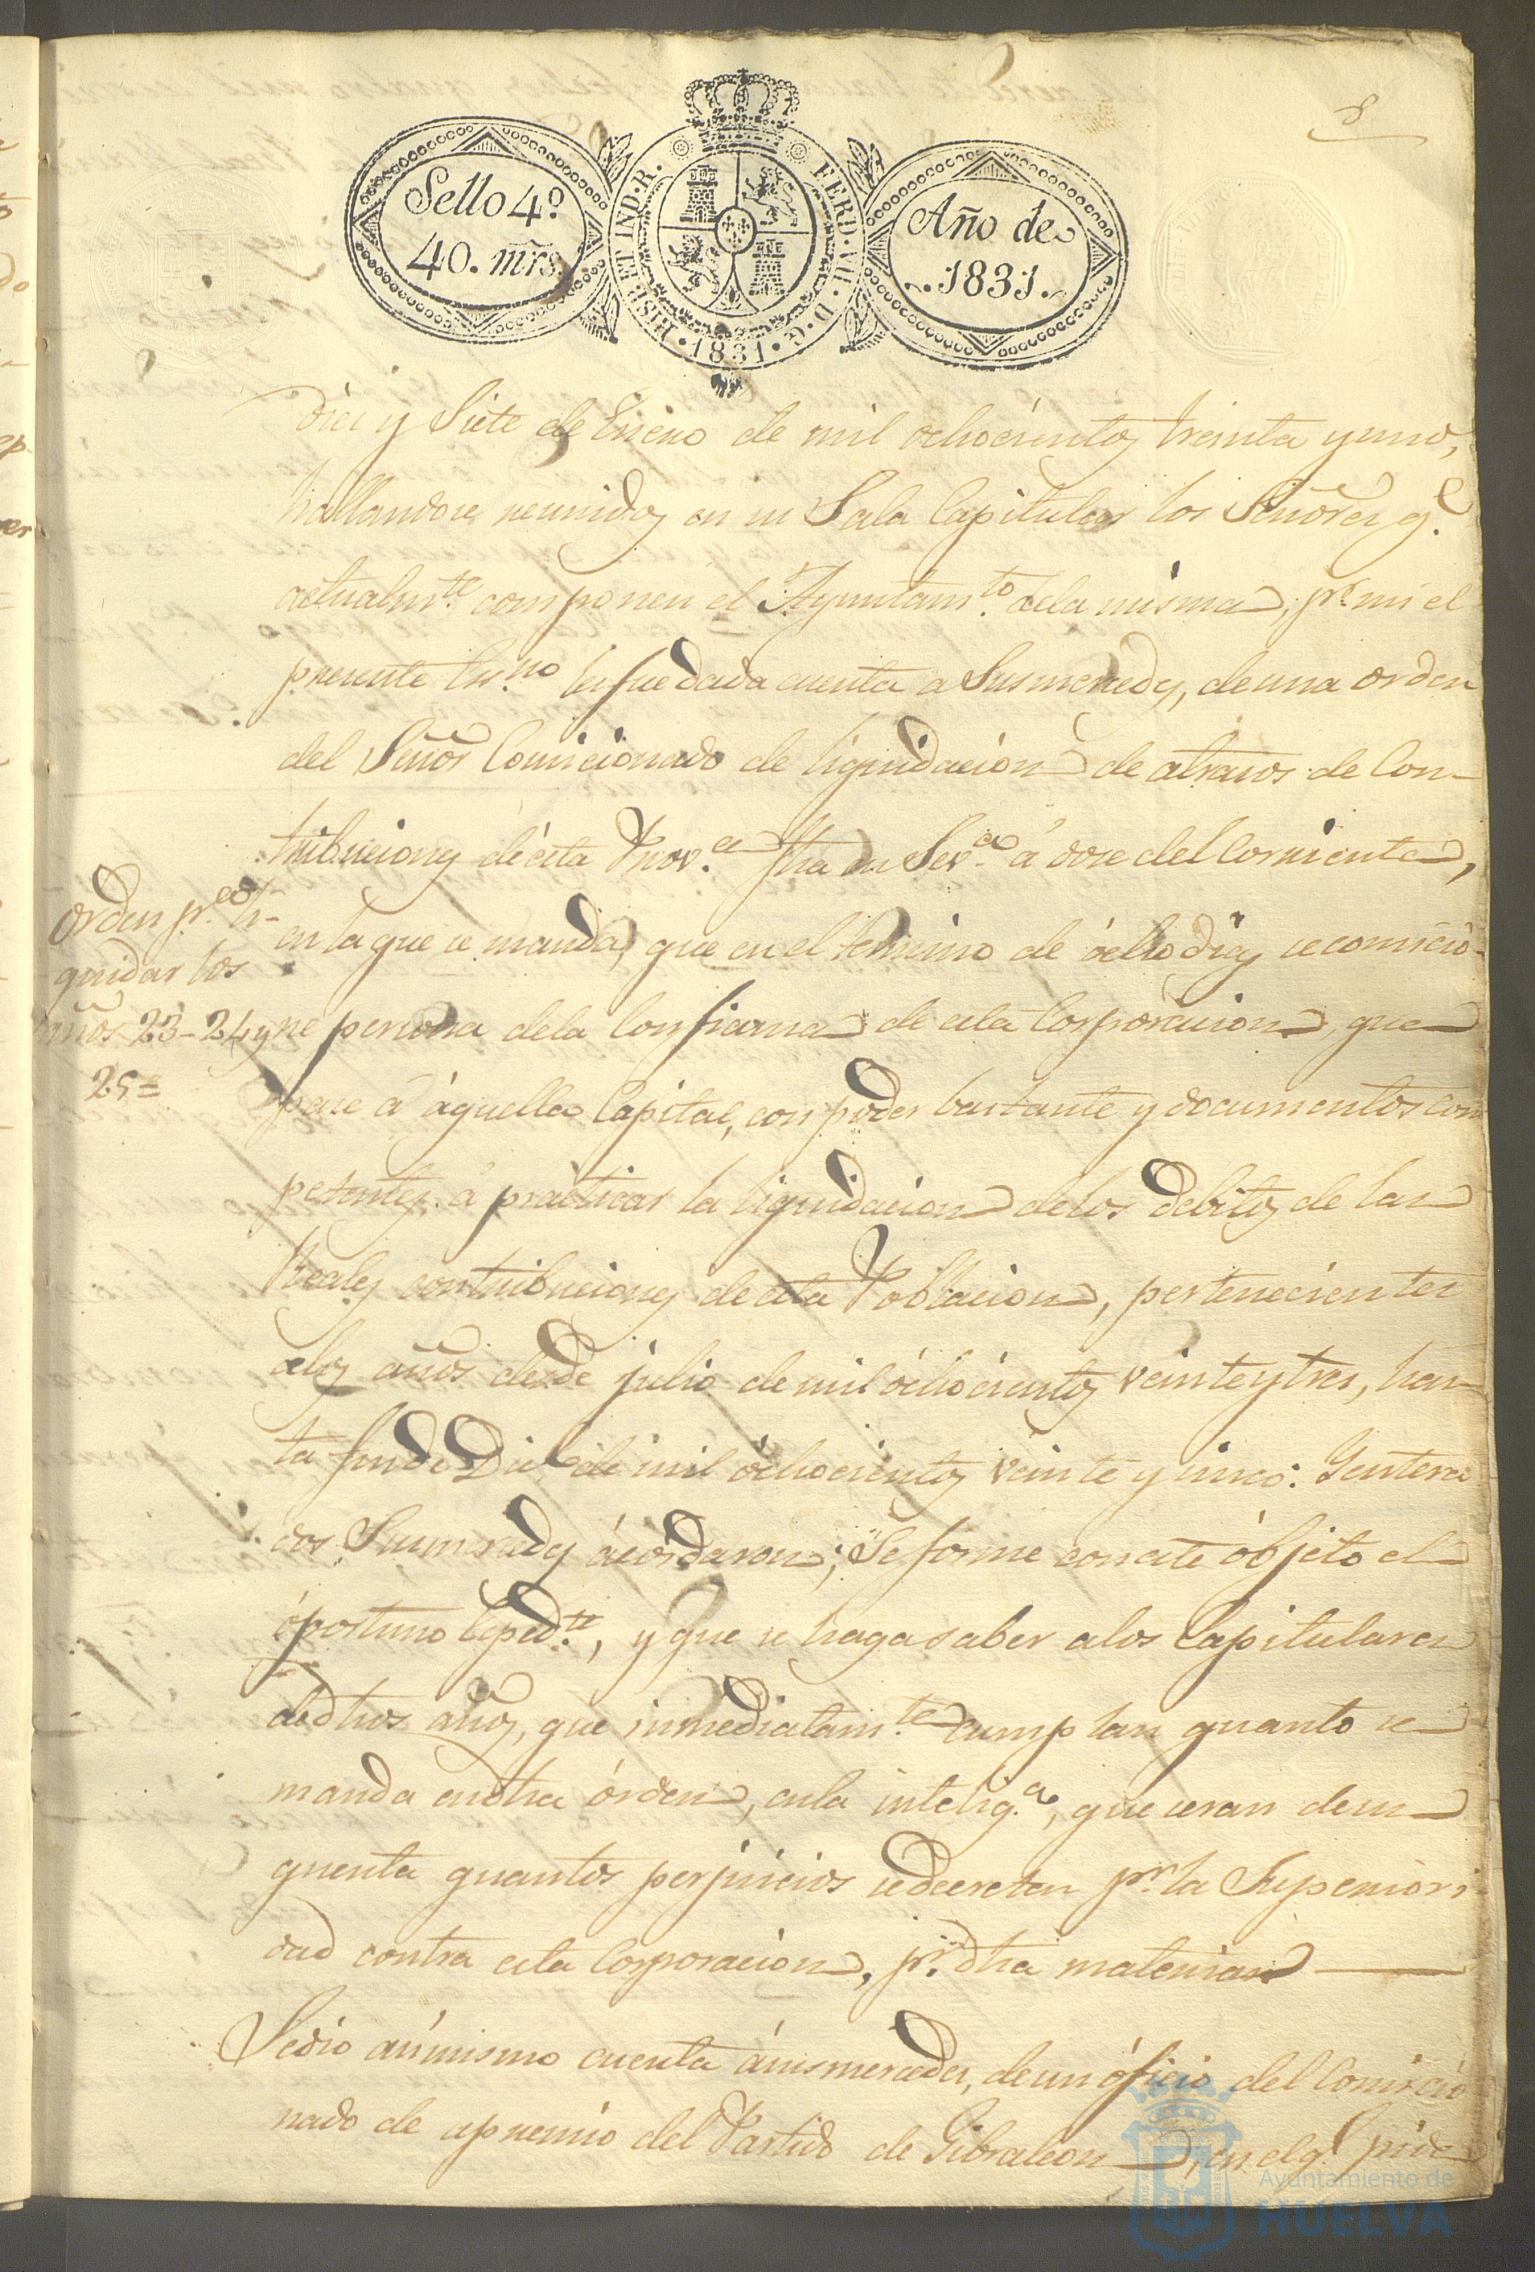 8
Sello 4º
40. mrs.
HISP. ET IND. R.
FERD. VII. D. G.
1831
Año de
1831.
diez y Siete de Enero de mil ochocientos treinta y uno,
hallandose reunidos en su Sala Capitular los Señores q.e
actualm.te componen el Ayuntam.to dela misma, p.r mi el
presente Ess.no les fue dada cuenta a Susmercedes, de una orden
del Señor Comicionado de liquidacion de atrasos de Con-
tribuciones de ésta Prov.a fha en Sev.a á doce del Corriente,
en la que se manda, que en el termino de ócho dias se comicio-
ne persona dela Confianza de esta Corporacion, que
pase á áquella Capital, con poder bastante y documentos com
petentes, á practicar la liquidacion delos debitos de las
Reales contribuciones de esta Poblacion, pertenecientes
alos años desde julio de mil óchocientos veinte y tres, has-
ta fin de Dic.e de mil óchocientos veinte y cinco: Y entera
dos Susmercedes ácordaron; Se forme con este óbjeto el
óportuno Esped.te, y que se haga saber a los Capitulares
dedhos años, que inmediatam.te cumplan quanto se
manda en dha órden, en la intelig.a, que seran de su
quenta quantos perjuicios se decreten p.r la Superiori-
dad contra esta Corporacion, p.r dha materia
Orden p.a li-
quidar los
años 23-24 y
25=
Se dió asimismo cuenta ásusmercedes, de un óficio del Comicio
nado de apremio del Partido de Gibraleon, en el q.e pide
Ayuntamiento de
HUELVA